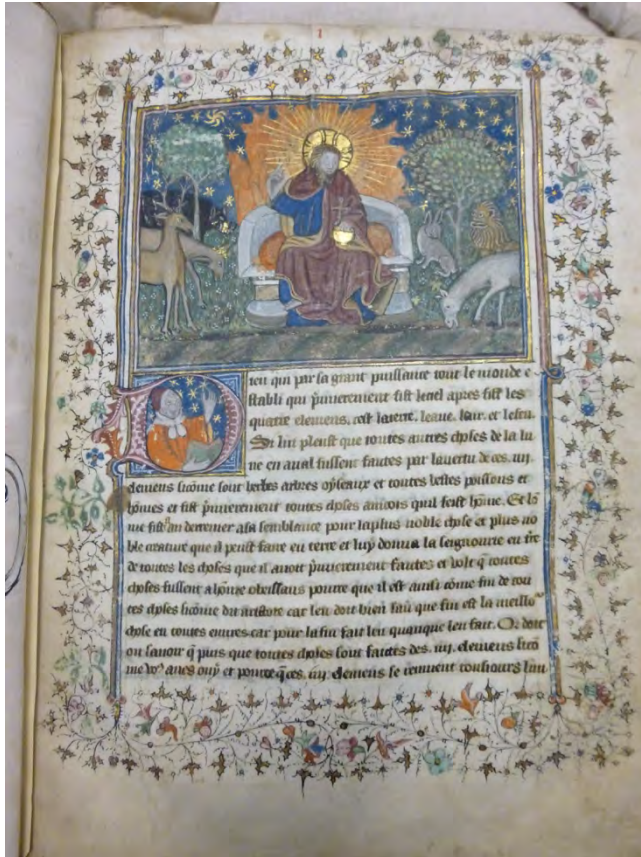 1
Dieu qui par sa grant puissance tout le monde e
stabli qui p̄mierement fist le ciel apres fist les
quatre elemens, cest la terre, leaue, lair, et le feu.
Si lui pleust que toutes autres choses de la lu
ne en aual fussent faites par la uertu de ces .iiij.
elemens sicōme sont herbes arbres oyseaux et toutes bestes poissons et
hōmes et fist p̄mierement toutes choses aincois quil feist hōme. Et hō
me fist au derrenier a sa semblance pour la plus noble chose et plus no
ble creature que il peust faire en terre et luy donna la seignourie en tr̄e
de toutes les choses que il auoit p̄mierement faites et uolt q̄ toutes
choses fussent a hōme obeissans pource que il est ainsi cōme fin de tou
tes choses sicōme dit aristote car len doit bien sau que fin est la meillour
chose en toutes euures car pour la fin fait len quanque len fait. Or doit
on sauoir q̄ puis que toutes choses sont faites des .iiij. elemens sicō
me uo9 aues ouy et pource q̄ ces .iiij. elemens se tiennent tousiours lun